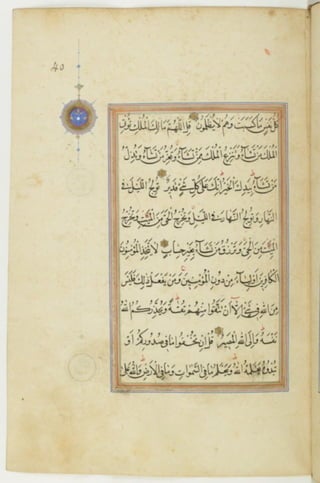 40
كل نفس ما كسبت وهم لا يظلمون قل اللهم مالك الملك تؤتي
الملك من تشاء وتنزع الملك ممن تشاء وتعز من تشاء وتذل
من تشاء بيدك الخير انك على كل شئ قدير تولج الليل في
النهار وتولج النهار في الليل وتخرج الحي من الميت وتخرج
الميت من الحي وترزق من تشاء بغير حساب لا يتخذ المؤمنون
الكافرين اولياء من دون المؤمنين ومن يفعل ذلك فليس
من الله في شئ الا ان تتقوا منهم تقية ويحذركم الله
نفسه والى الله المصير قل ان تخفوا ما في صدوركم او
تبدوه يعلمه الله ويعلم ما في السموات وما في الارض والله على